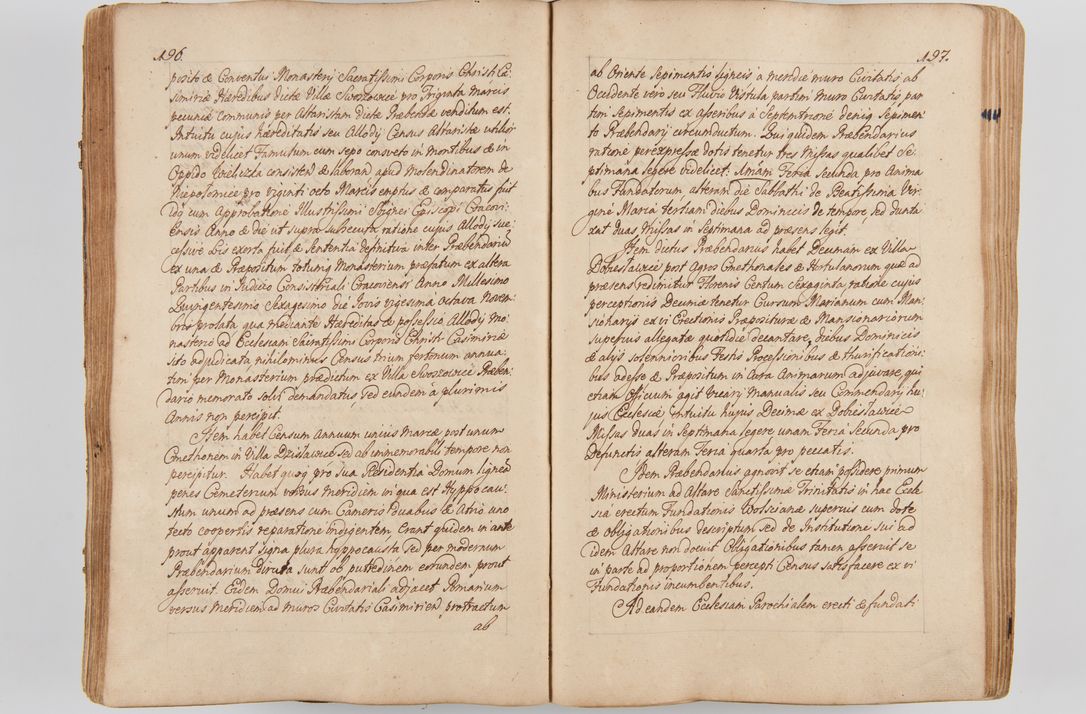 196.
posito & Conventus Monasterij Sacratissimi Corporis Christi Ca-
simiriæ Hæredibus dictæ Villæ Swoszowice pro Triginta Marcis
pecuniæ communis per Altaristam dictæ Præbendæ venditum est.
Intuitu cujus hæreditatis seu Allodij Census Altaristæ utilior
unum videlicet Famulum cum sepo consveto in Montibus & in
Oppido Wieliczka consisten & laboran apud Molendinatorem de
Niepolomice pro viginti octo Marcis emptus & comparatus fuit
idq cum Approbatione Illustrissimi Episcopi Cracovi-
ensis Anno & die ut supra subsecuta ratione cujus Allodij suc-
cessive lis exorta fuit & Sententia definitiva inter Præbendariu
ex una & Præpositum totumq Monasterium præfatum ex altera
Partibus in Judicio Consistoriali Cracoviensi Anno Millesimo
Quingentesimo Sexagesimo die Jovis vigesima octava Novem-
bris prolata qua mediante Hæreditas & possessio Allodij Mo-
nasterio ad Ecclesiam Sacratissimi Corporis Christi Casimiriæ
sito adjudicata nihilominus Census trium fertonum annua-
tim per Monasterium prædictum ex Villa Swoszowice Præben-
dario memorato solvi demandatus, sed eundem â plurimis
Annis non percipit.
Item habet Censum Annuum unius Marcæ post unum
Cmethonem in Villa Dzislawice sed ab immemorabili tempore non
percipitur. Habet quoq pro sua Residentia Domum ligneã
penes Cemeterium versus Meridiem in qua est Hyppocau-
stum unum ad præsens cum Cameris Duabus & Atrio uno
tecto coopertis reparatione indigentem. Erant quidem in ante
prout apparent signa plura hyppocausta sed per modernum
Præbendarium diruta sunt ob putredinem eorundem prout
asseruit. Eidem Domui Præbendariali adjacet Pomarium
versus Meridiem ad muros Civitatis Casimirien protractum
ab
197.
ab Oriente sepimentis ligneis â meridie muro Civitatis ab
Occidente verò seu Fluvio Vistula partim Muro Civitatis par
tim sepimentis ex asseribus â Septentrione deniq Sepimen-
to Præbendarij circumductum. Qui quidem Præbendarius
ratione perexpressæ dotis tenetur tres Missas qualibet Se-
ptimana legere videlicet: Unam Feria Secunda pro Anima
bus Fundatorum alteram die Sabbathi de Beatissima Vir-
gine Maria tertiam diebus Dominicis de tempore, sed dunta
xat duas Missas in Septimana ad præsens legit.
Item dictus Præbendarius habet Decimam ex Villa
Dobieslawice post Agros Cmethonales & Hortulanorum quæ ad
præsens redimitur Florenis Centum Sexaginta ratione cujus
perceptionis Decimæ tenetur Cursum Marianum cum Man-
sionarijs ex vi Erectionis Præpositurae & Mansionariorum
superius allegatæ quotidie decantare, diebus Dominicis
& alijs solennioribus Festis Processionibus & thurificationi-
bus adesse & Præpositum in Cura Animarum adjuvare, qui
etiam Officium agit Vicarij Manualis seu Commendarij hu-
jus Ecclesiæ Intuitu hujus Decimæ ex Dobieslawice
Missas duas in Septimana legere, unam Feria Secunda pro
Defunctis alteram Feria quarta pro peccatis.
Idem Præbendarius agnovit se etiam possidere primum
Ministerium ad Altare Sanctissimæ Trinitatis in hac Eccle
sia erectum Fundationis Wolscianæ superius cum dote
& obligationibus descriptum sed de Institutione sui ad
idem Altare non docuit. Obligationibus tamen asseruit se
in parte ad proportionem percepti Census satisfacere ex vi
Fundationis incumbentibus.
Ad eandem Ecclesiam Parochialem erecti & fundati